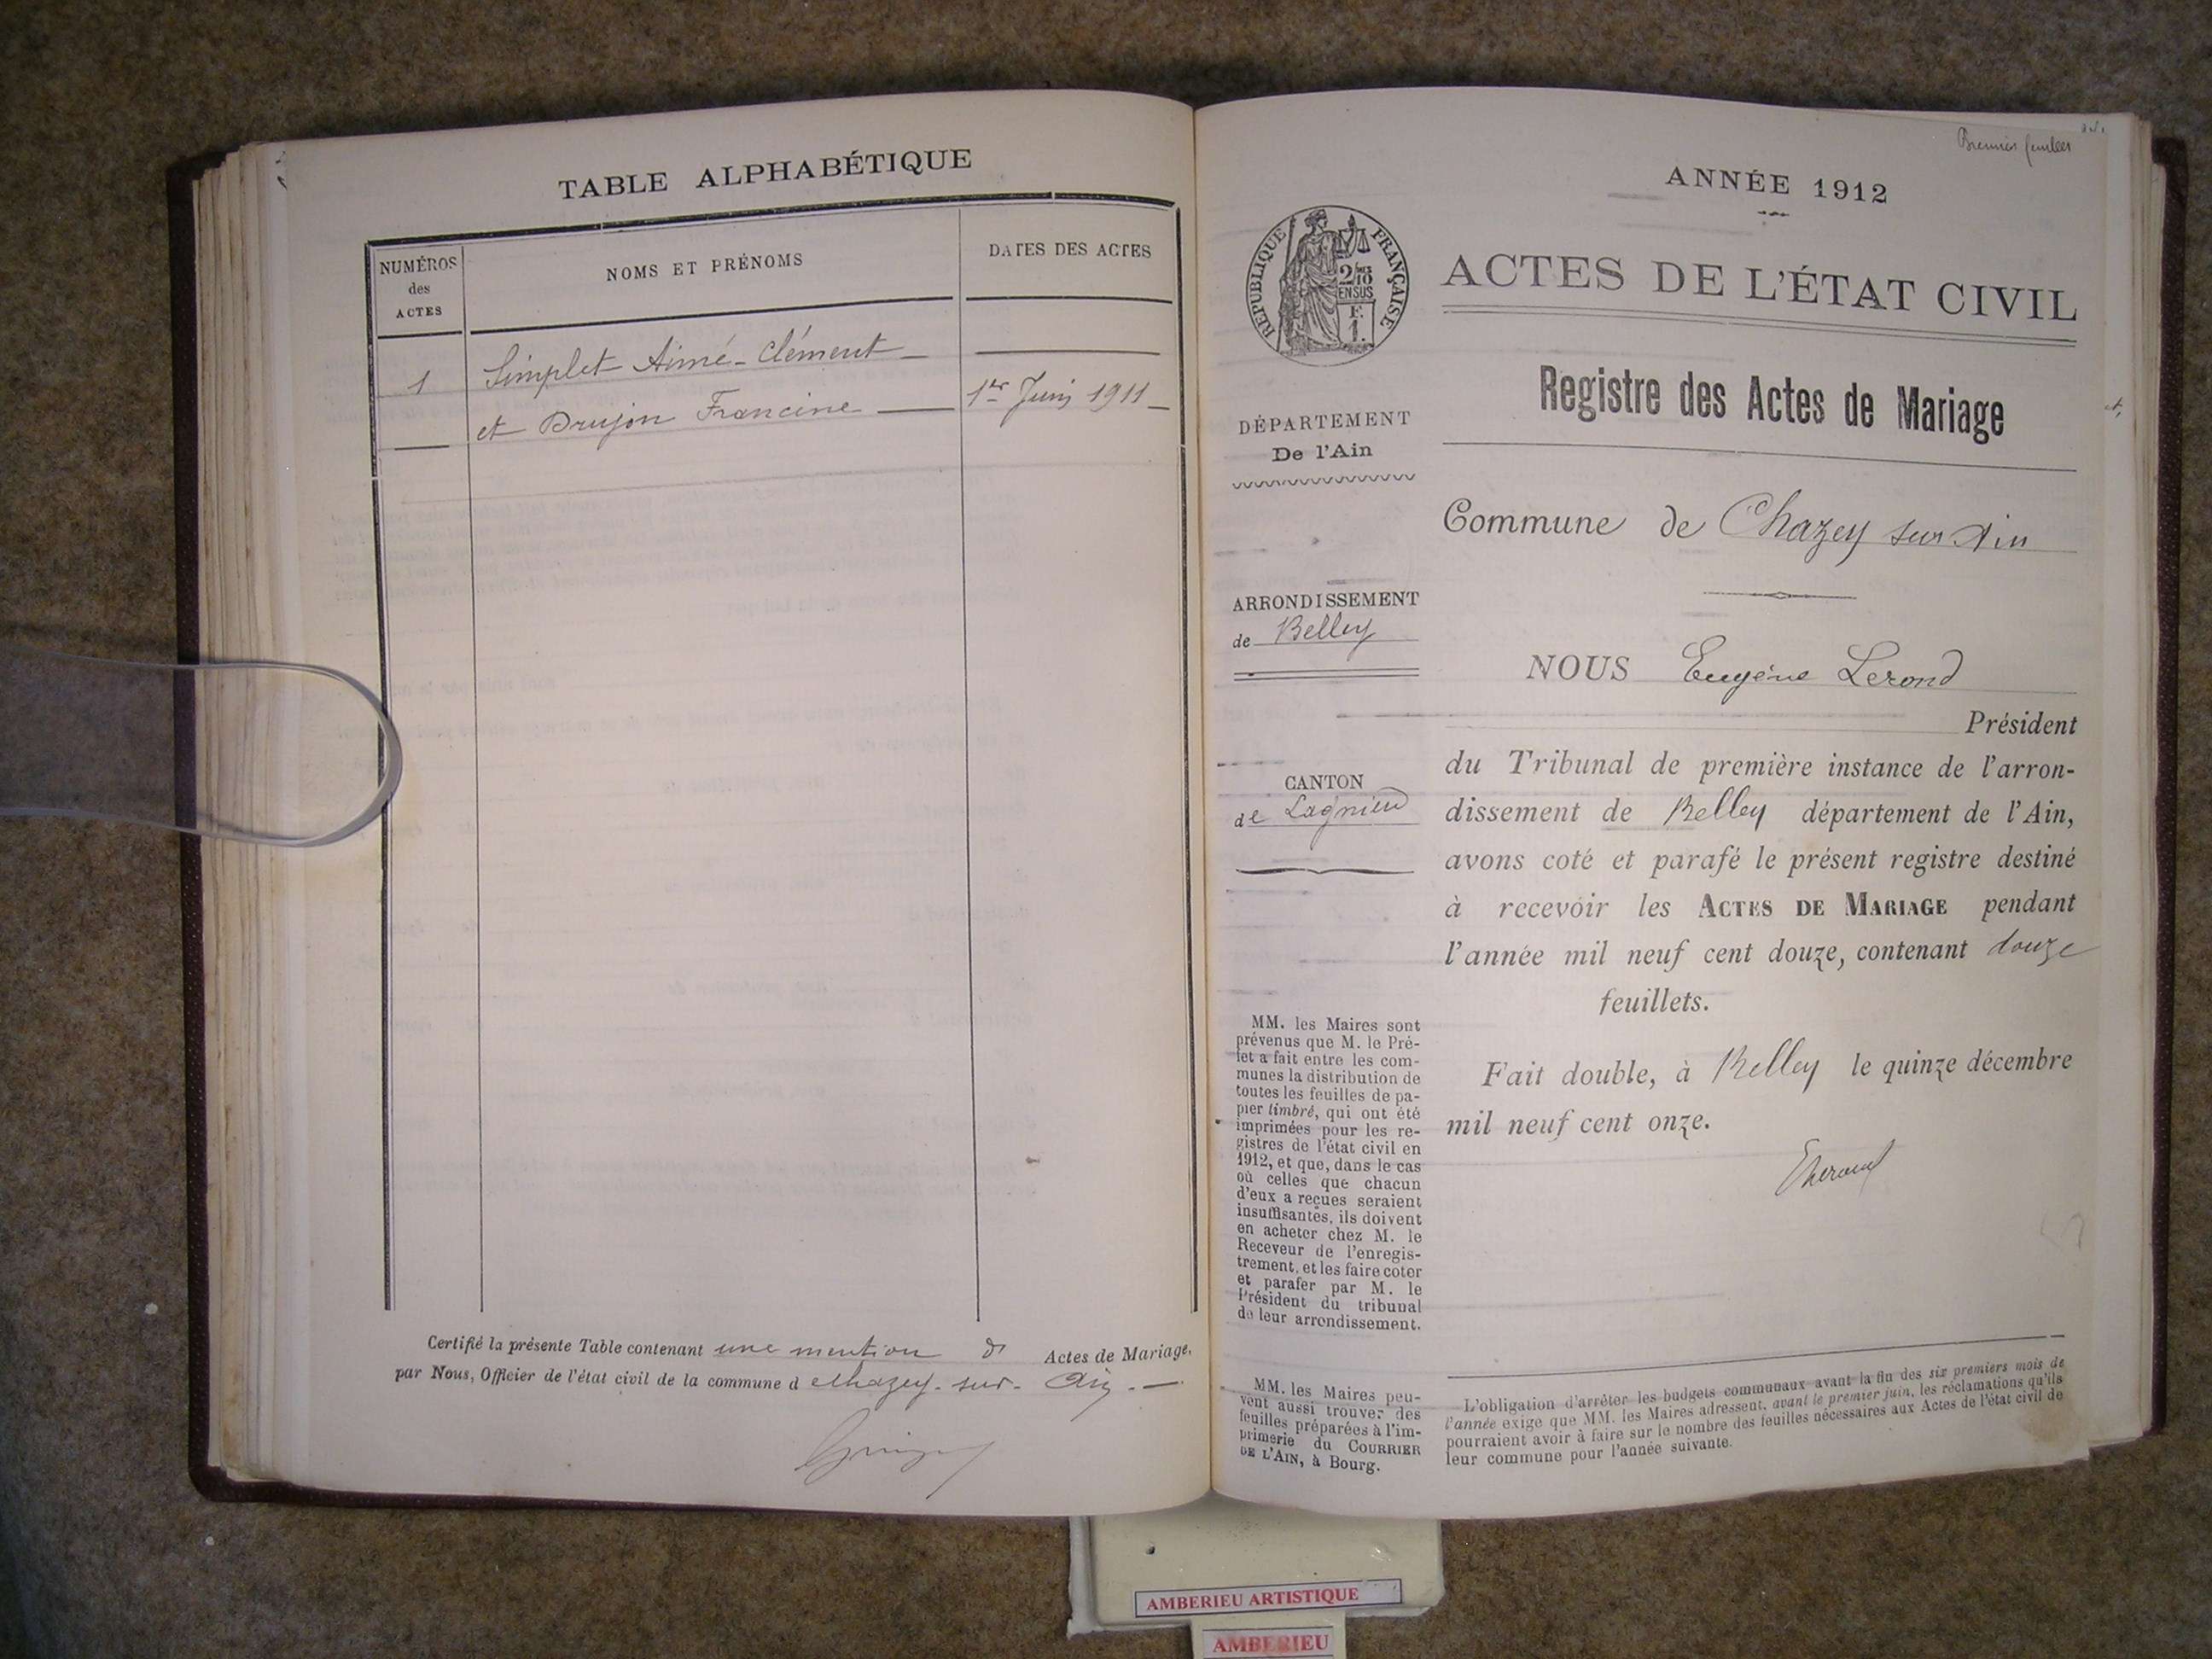 TABLE ALPHABÉTIQUE
NUMÉROS
des
ACTES
NOMS ET PRÉNOMS
DATES DES ACTES
1
Simplet Aimé-Clément
et Drujon Francine
1er Juin 1911
Certifié la présente Table contenant une mention d Actes de Mariage,
par Nous, Officier de l'état civil de la commune d e Chazey-sur-Ain.
Premier feuillet
ANNÉE 1912
RÉPUBLIQUE FRANÇAISE
2/10
EN SUS
F.
1.
ACTES DE L'ÉTAT CIVIL
Registre des Actes de Mariage
DÉPARTEMENT
De l'Ain
Commune de Chazey sur Ain
ARRONDISSEMENT
de Belley
CANTON
de Lagnieu
NOUS Eugène Lerond
Président
du Tribunal de première instance de l'arron-
dissement de Belley département de l'Ain,
avons coté et parafé le présent registre destiné
à recevoir les ACTES DE MARIAGE pendant
l'année mil neuf cent douze, contenant douze
feuillets.
Fait double, à Belley le quinze décembre
mil neuf cent onze.
MM. les Maires sont
prévenus que M. le Pré-
fet a fait entre les com-
munes la distribution de
toutes les feuilles de pa-
pier timbré, qui ont été
imprimées pour les re-
gistres de l'état civil en
1912, et que, dans le cas
où celles que chacun
d'eux a reçues seraient
insuffisantes, ils doivent
en acheter chez M. le
Receveur de l'enregis-
trement, et les faire coter
et parafer par M. le
Président du tribunal
de leur arrondissement.
MM. les Maires peu-
vent aussi trouver des
feuilles préparées à l'im-
primerie du COURRIER
DE L'AIN, à Bourg.
L'obligation d'arrêter les budgets communaux avant la fin des six premiers mois de
l'année exige que MM. les Maires adressent, avant le premier juin, les réclamations qu'ils
pourraient avoir à faire sur le nombre des feuilles nécessaires aux Actes de l'état civil de
leur commune pour l'année suivante.
AMBERIEU ARTISTIQUE
AMBERIEU